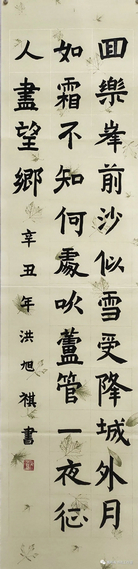 回樂峯前沙似雪受降城外月
如霜不知何處吹蘆管一夜征
人盡望鄉
辛丑年洪旭祺書